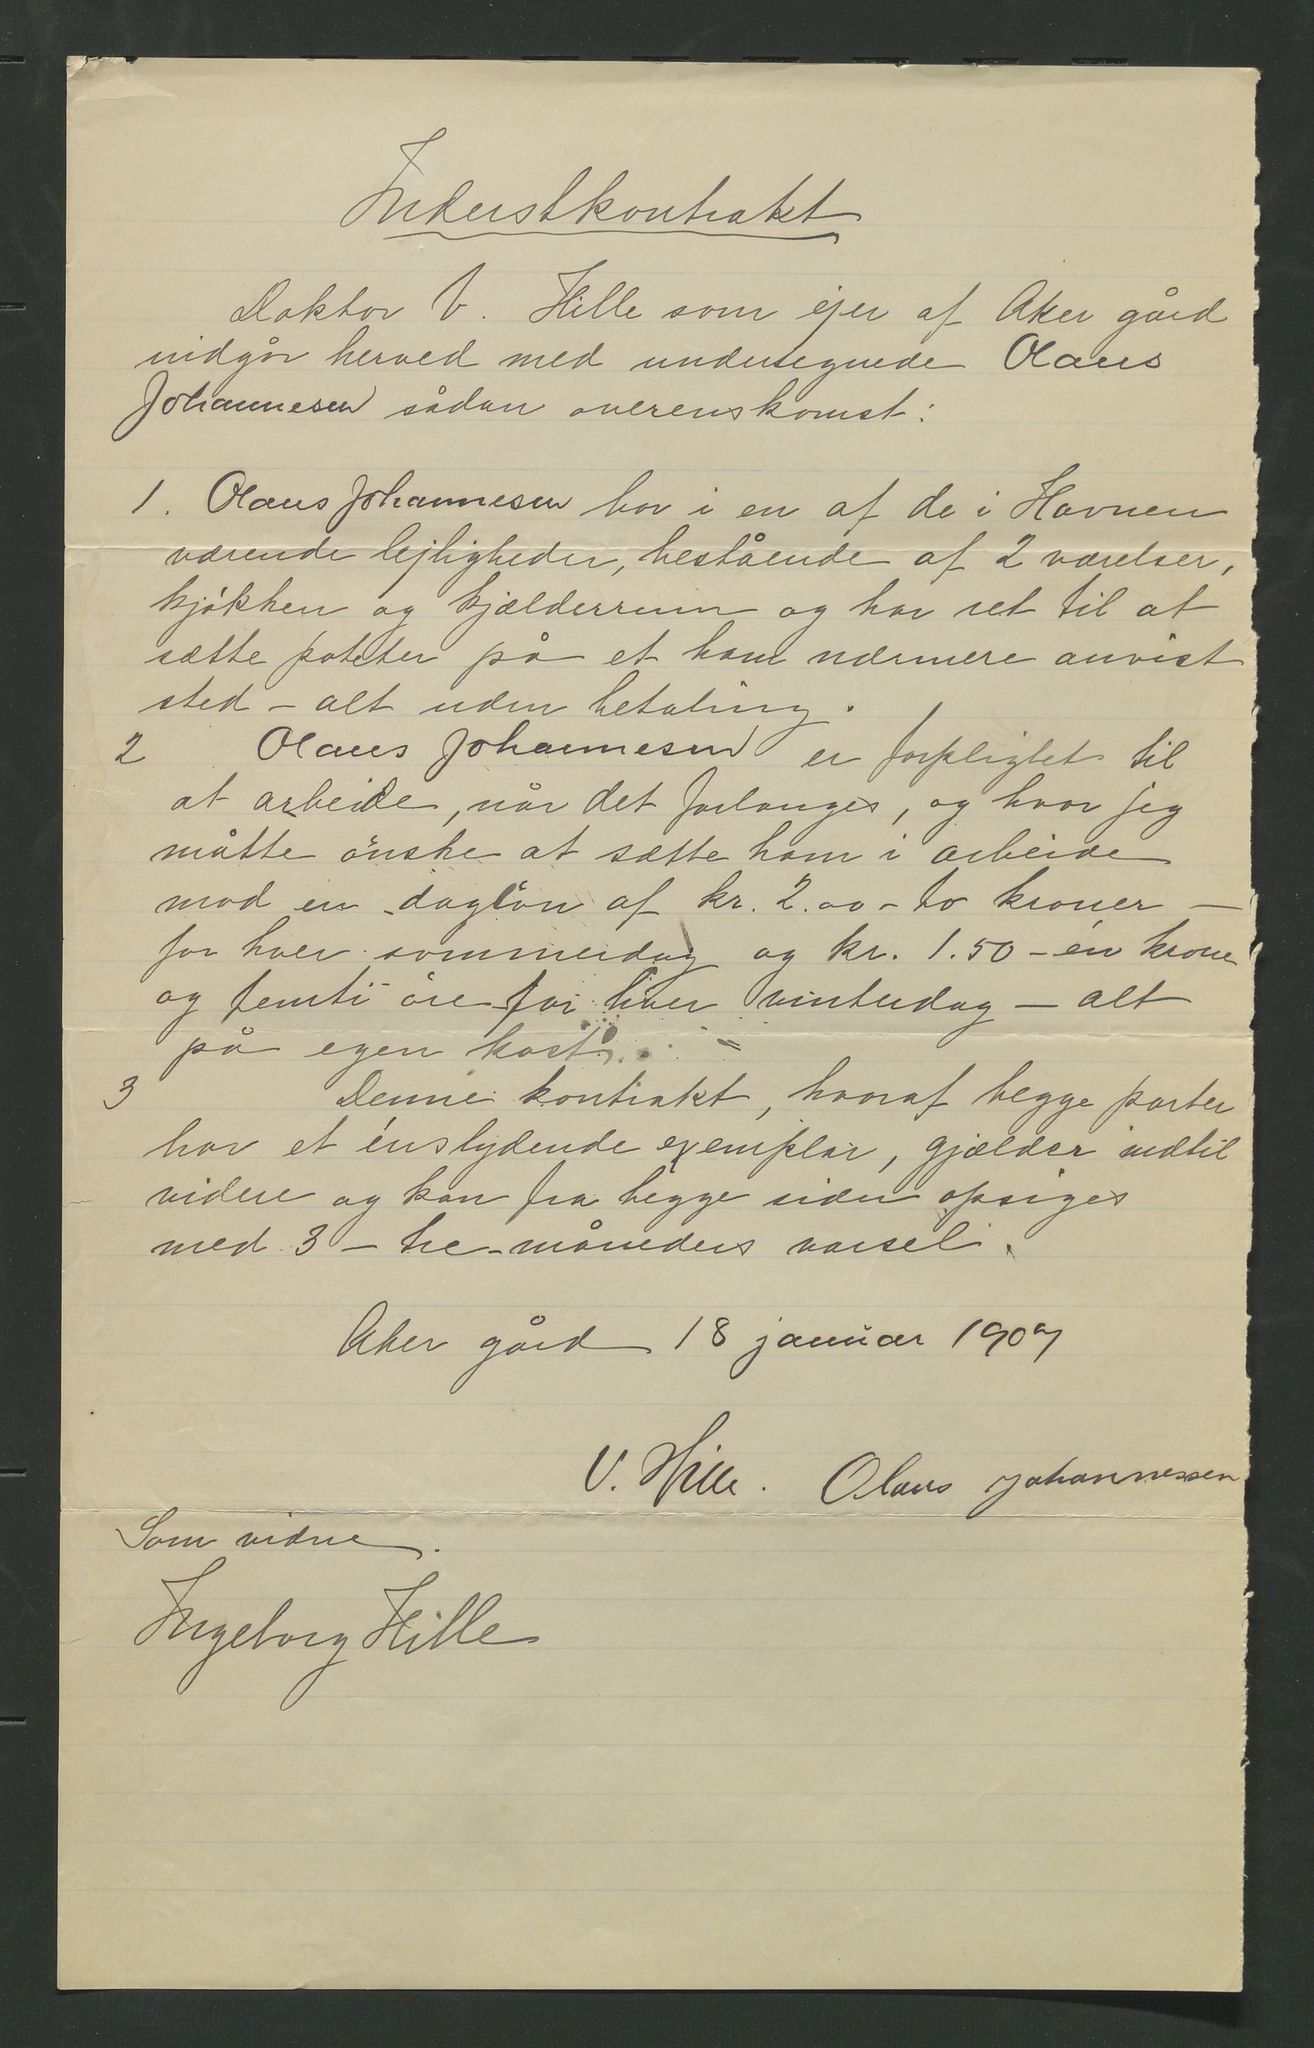 Inderstkontrakt
Doktor V. Hille som ejer af Aker gård
indgår herved med undertegnede Olaus
Johannesen sådan overenskomst:
1. Olaus Johannesen bor i en af de i Havnen
værende lejligheder, bestående af 2 værelser,
kjökken og kjælderrum og har ret til at
sætte poteter på et ham nærmere anvist
sted – alt uden betaling.
2 Olaus Johannesen er forpligtet til
at arbeide, når det forlanges, og hvor jeg
måtte önske at sætte ham i arbeide
mod en daglön af kr. 2.00 – to kroner –
for hver sommerdag og kr. 1.50 – én krone
og femti öre for hver vinterdag – alt
på egen kost.
3 Denne kontrakt, hvoraf begge parter
har et énslydende exemplar, gjælder indtil
videre og kan fra begge sider opsiges
med 3 – tre – måneders varsel.
Aker gård 18 januar 1907
V. Hille. Olaus Johannessen
Som vidne.
Ingeborg Hille